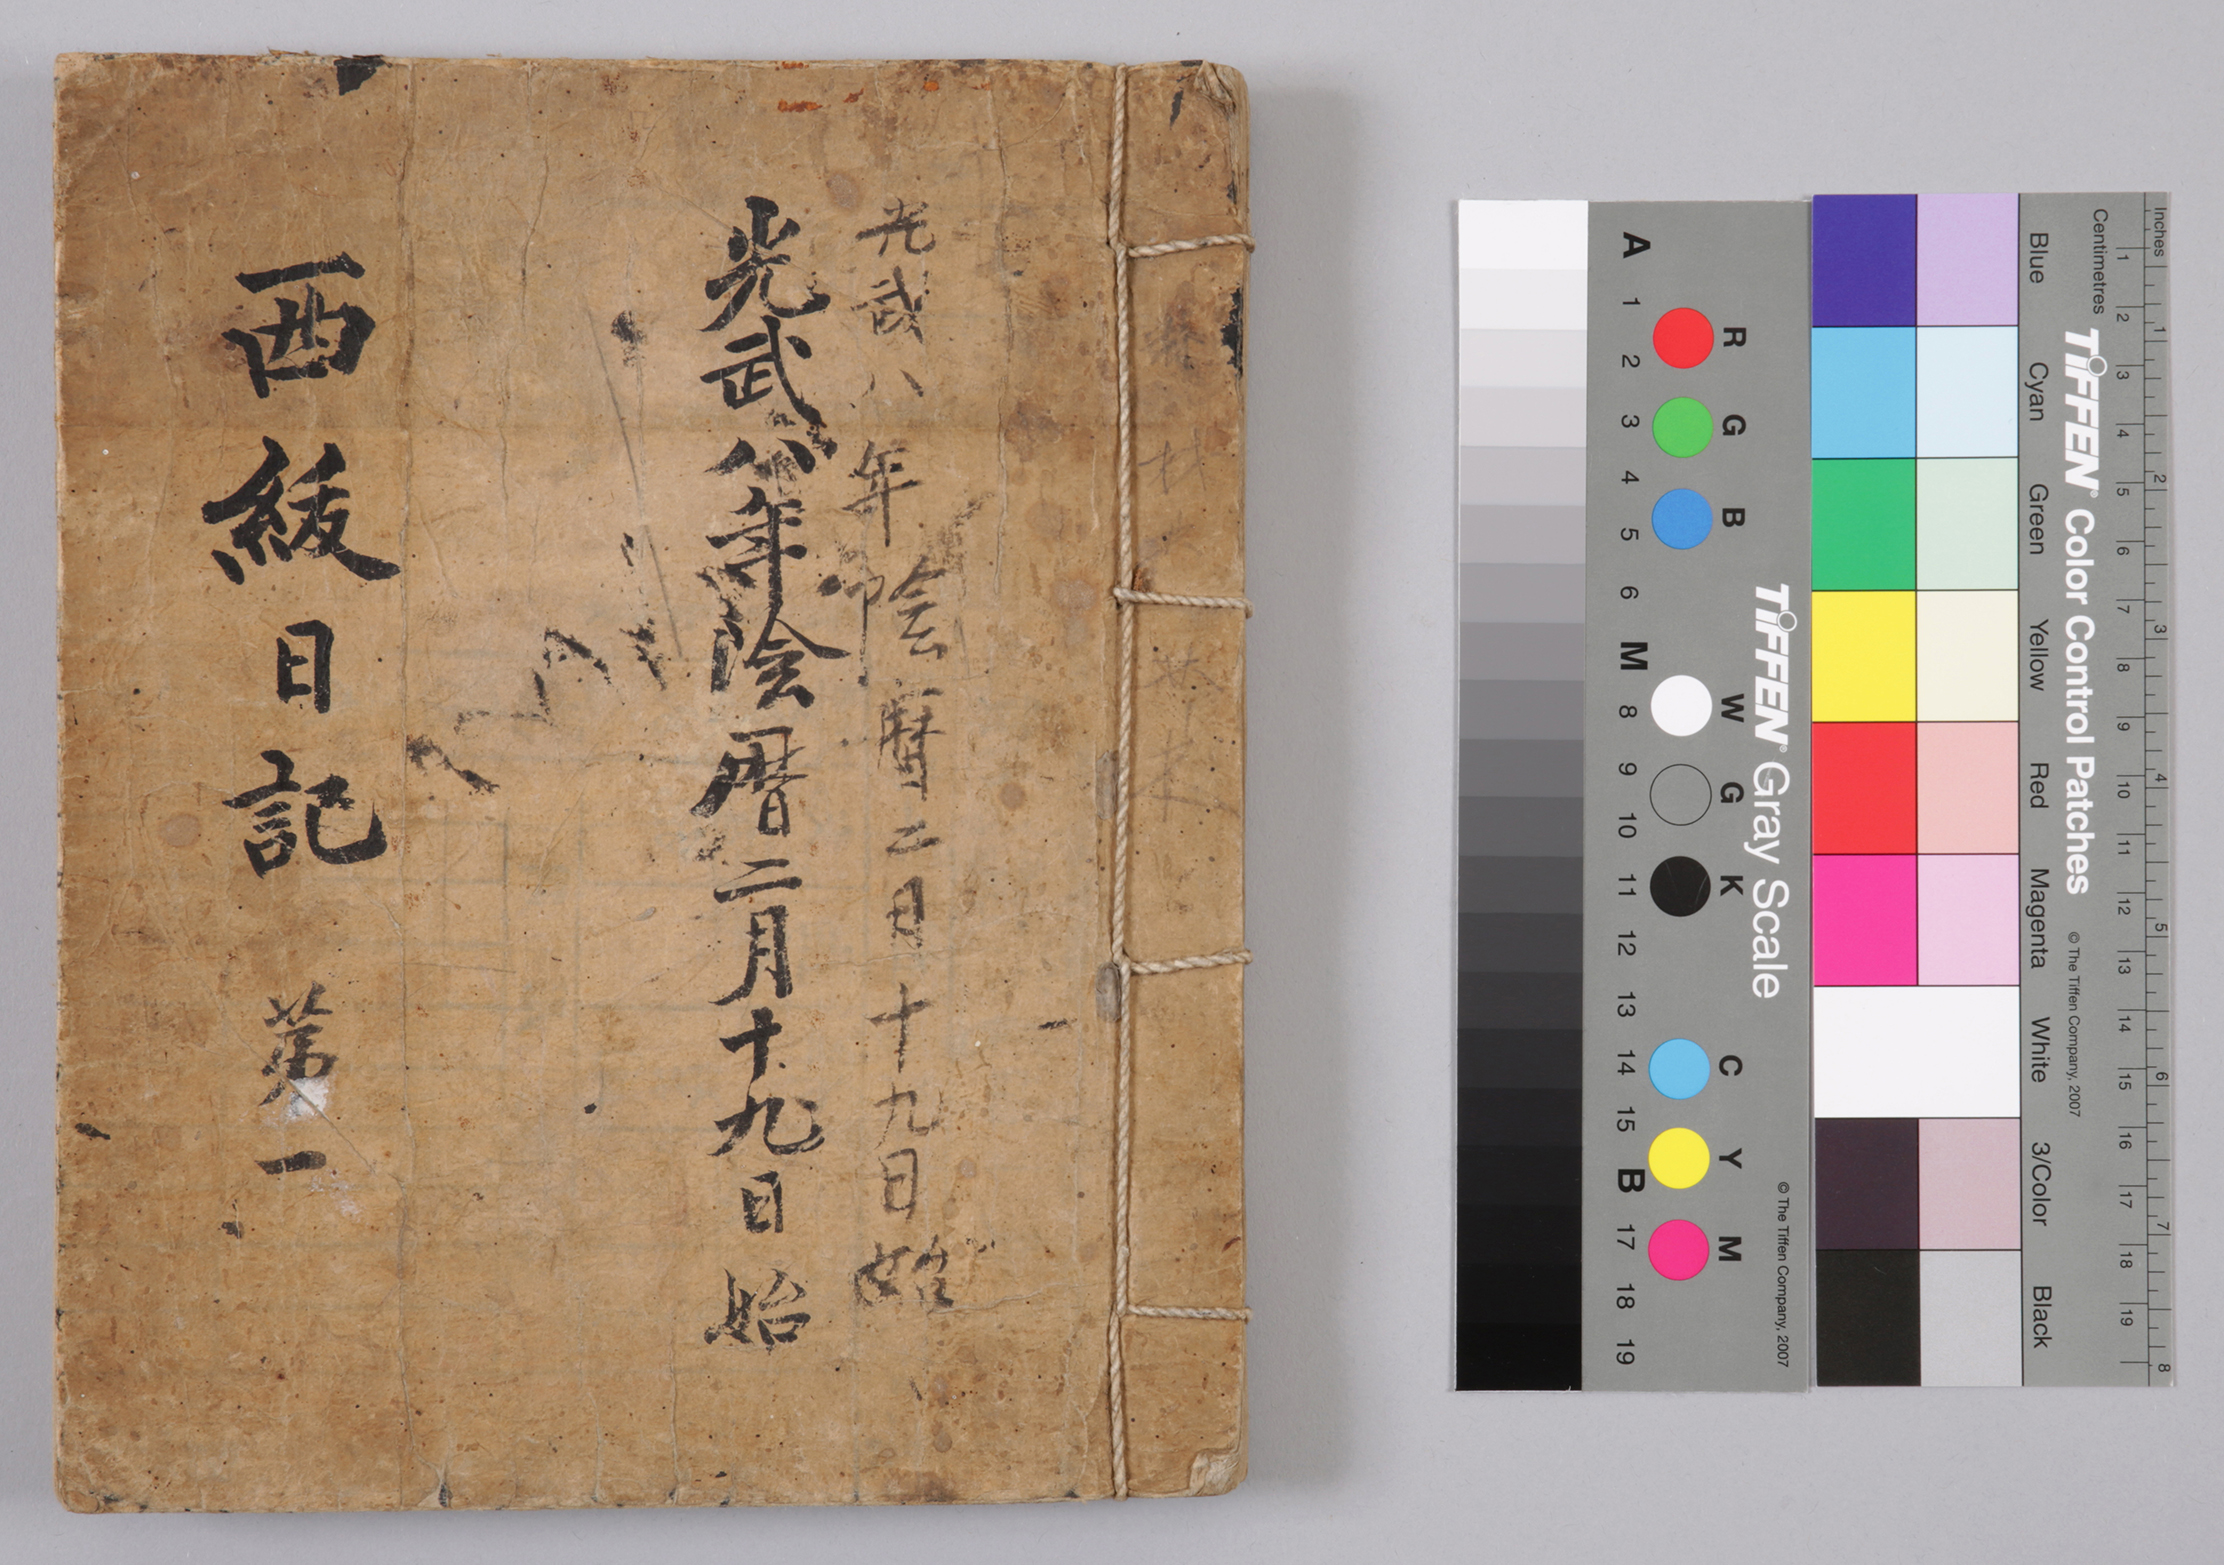 光武八年陰曆二月十九日始
光武八年陰曆二月十九日始
西 日記 第一
A 1 2 3 4 5 6 M 8 9 10 11 12 13 14 15 B 17 18 19
R G B W G K C Y M
TIFFEN® Gray Scale
© The Tiffen Company, 2007
Blue Cyan Green Yellow Red Magenta White 3/Color Black
TIFFEN® Color Control Patches
© The Tiffen Company, 2007
Centimetres 1 2 3 4 5 6 7 8 9 10 11 12 13 14 15 16 17 18 19
Inches 1 2 3 4 5 6 7 8